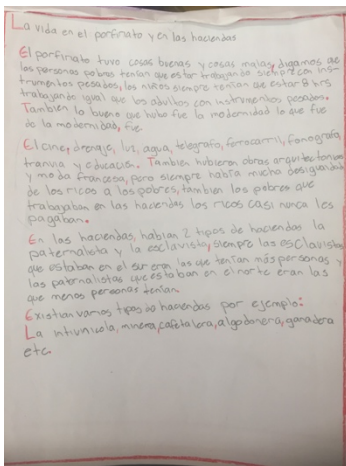 La vida en el porfinato y en las haciendas
El porfinato tuvo cosas buenas y cosas malas, digamos qe
las personas pobres tenían que estar trabajando siempre con ins-
trumentos pesados, los niños siempre tenían que estar 8 hrs
trabajando igual que los adultos con instrumentos pesados.
También lo bueno que hubo fue la modernidad lo que fue
de la modernidad, fue.
El cine, drenaje, luz, agua, telegrafo, ferrocarril, fonografo,
tranvia y educación. Tambien hubieron obras arquitectonicas
y moda francesa, pero siempre había mucha desigualdad
de los ricos a los pobres, tambien los pobres que
trabajaban en las haciendas los ricos casi nunca les
pagaban.
En las haciendas, habian 2 tipos de haciendas la
paternalista y la esclavista, siempre las esclavistas
que estaban en el sur eran las que tenían más personas y
las paternalistas que estaban en el norte eran las
que menos personas tenían.
Existian varios tipos de haciendas por ejemplo:
La minera, cafetalera, algodonera, ganadera
etc.